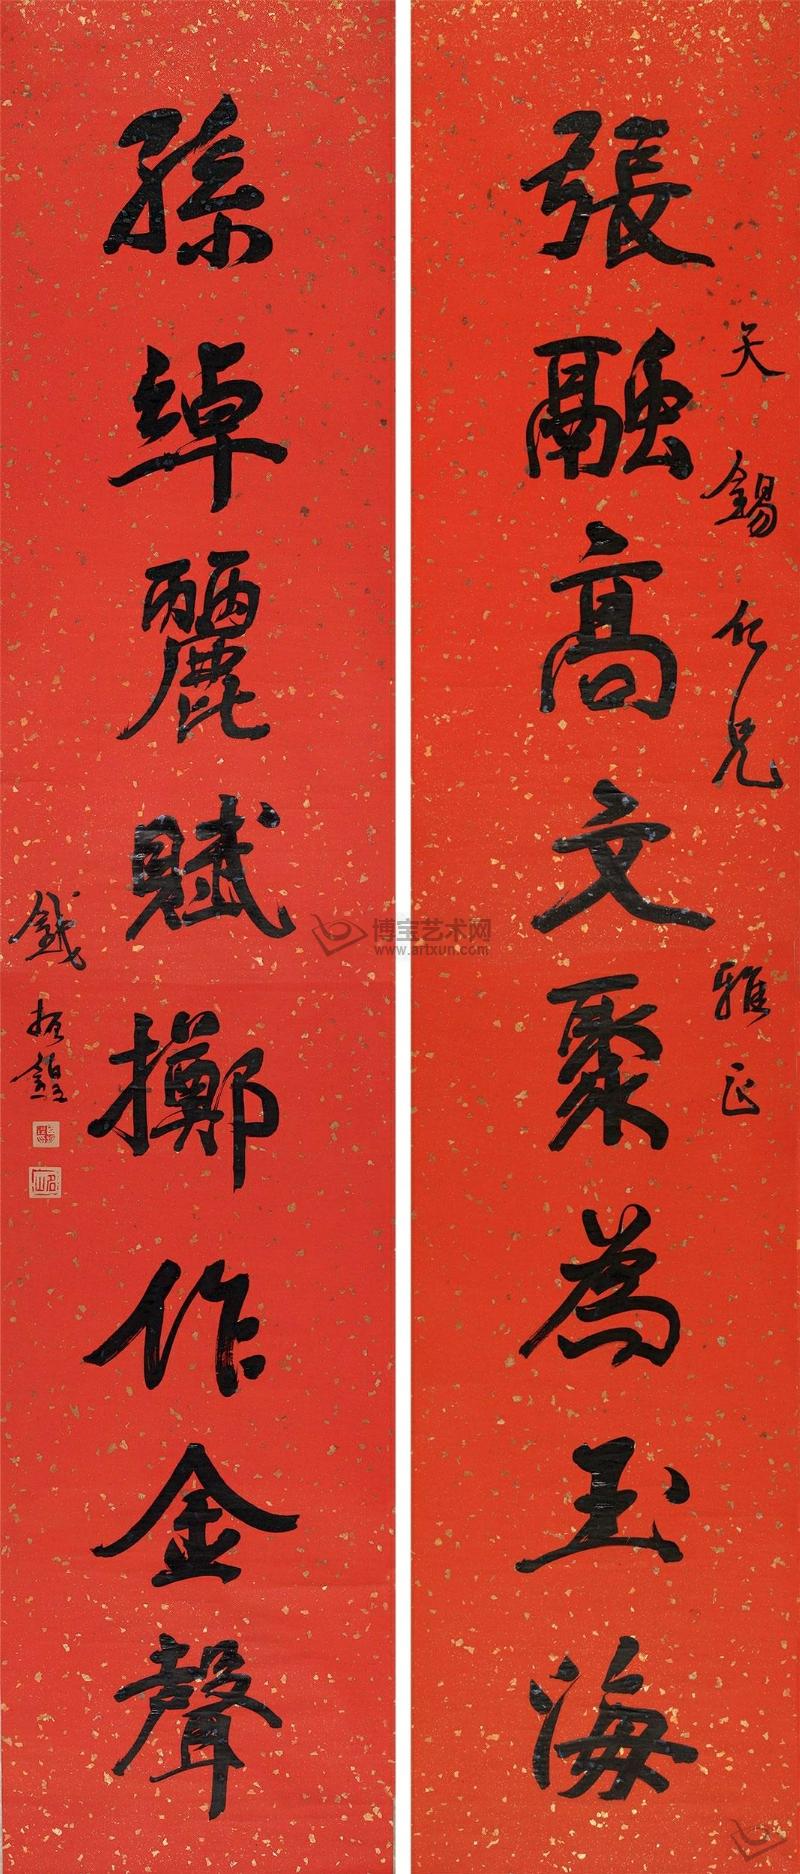 張融高文聚為玉海
天錫仁兄雅正
孫綽麗賦擲作金聲
錢振鍠
名山
博宝艺术网
www.artxun.com